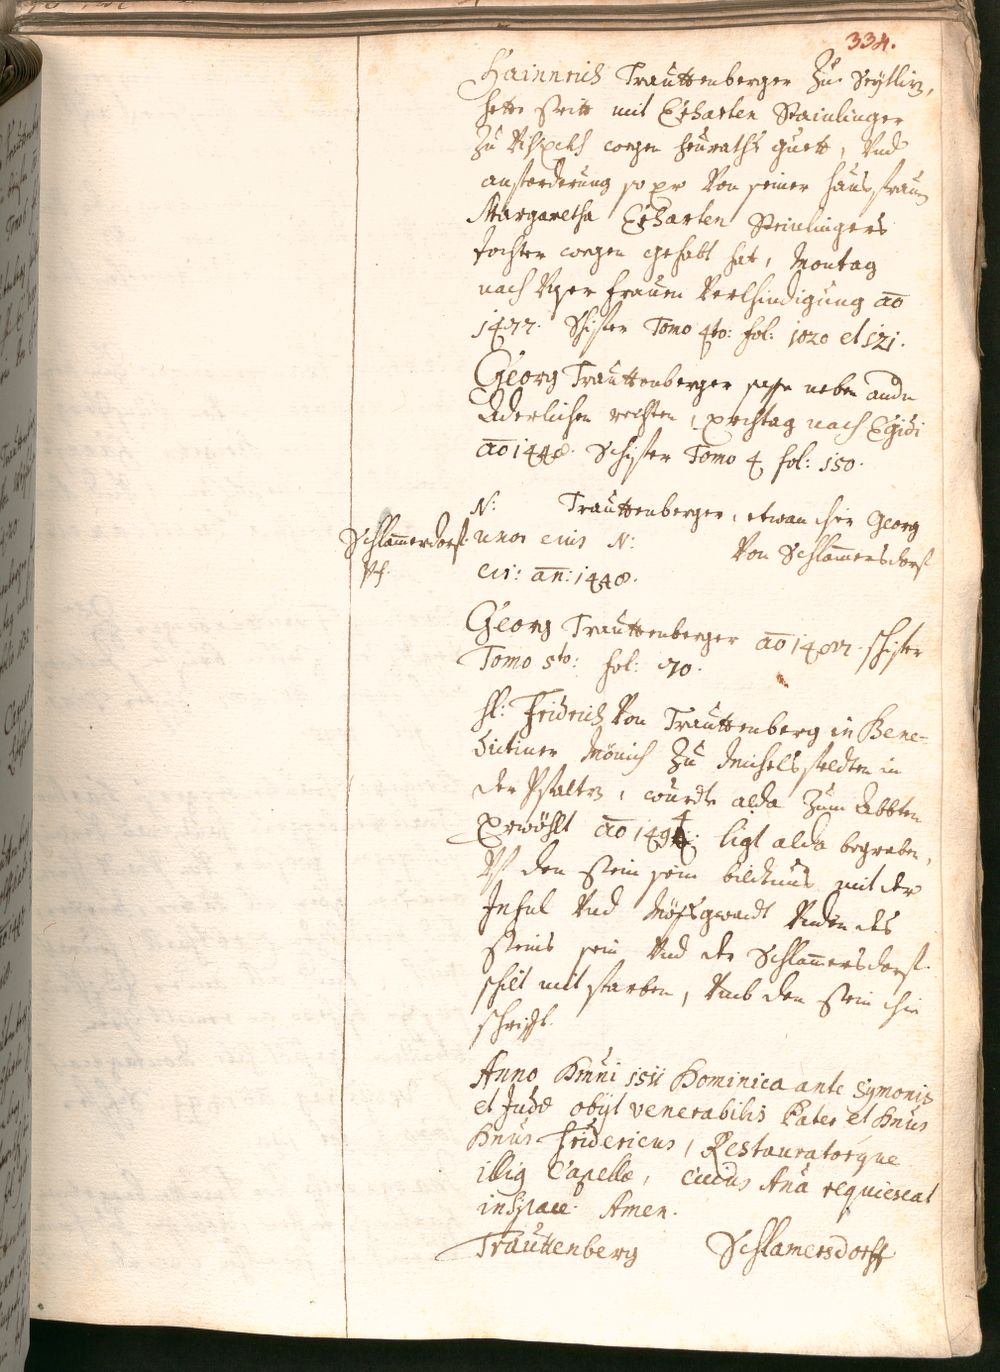 334.
Hainnrich Trauttenberger Zu
hette Stritt mit Erharten Stainlinger
Zu wegen heuraths guett, Vnd
anforderung so er Von seiner haussfrauen
Margaretha Erharten Steinlingers
tochter wegen gehabt hat, Montag
nach Vnser frauen Verkhindigung ao
1477. Schifer Tomo 4to: fol: 1020 et 121.
Georg Trauttenberger sasse neben andn
Aderlichen rechten, erchtag nach Egidi
ao 1448. Schifer Tomo 4 fol: 150.
N: Trauttenberger, etwan hie Georg
Schlam̄erdorf uxor eius N: Von Schlam̄ersdorf
cir: an: 1448.
Georg Trauttenberger ao schifer
Tomo 5to: fol: 70.
H: Fridrich Von Trauttenberg in Bene-
dictiner Mönich Zu Michelsfeldten in
der Pfaltz, wurdte alda Zum Abbten
Erwöhlt ao 1494. ligt alda begraben,
Vf den stein sein bildtnus mit der
Inful Vnd Mössgwandt Vnden des
steins sein Vnd der Schlam̄ersdorf.
schilt mit farben, Vmb den stein ein
schrifft.
Anno Dm̄ni 1511 Dominica ante Symonis
et Judæ obijt venerabilis Pater et Dn̄us
Dn̄us Fridericus, Restauratorque
illig Capellæ, cuius An̄a requiescat
in Space. Amen.
Trauttenberg Schlamersdorff